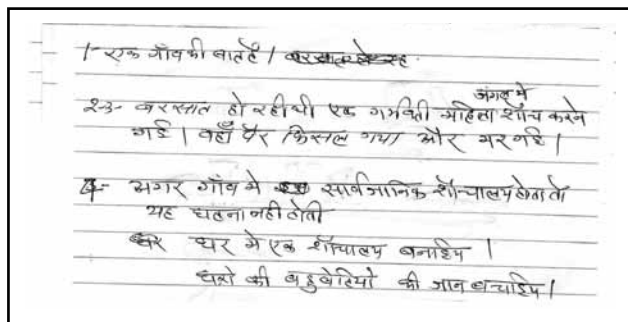 1- एक गाँव की बात है।
जंगल में
2-3- बरसात हो रही थी एक गर्भवती महिला शौच करने
गई। वहाँ पैर फिसल गया और गर गई।
4- अगर गाँव मे सार्वजानिक शौचालय होता तो
यह घटना नही होती
घर घर मे एक शौचालय बनाइए।
घरो की बहु बेटियो की जान बचाइए।